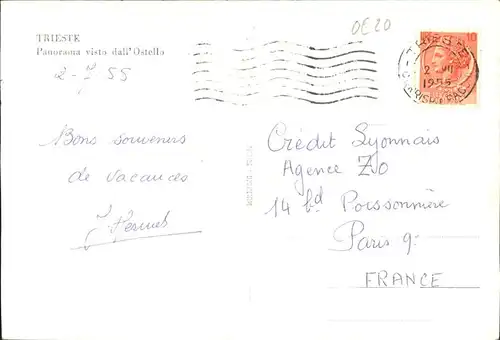 TRIESTE
Panorama visto dall'Ostello
2-7 55
Bons souvenirs
de vacances
OE20
10
TRIESTE
2 VII
1955
Crédit Lyonnais
Agence ZO
14 bd Poissonnière
Paris 9e
FRANCE